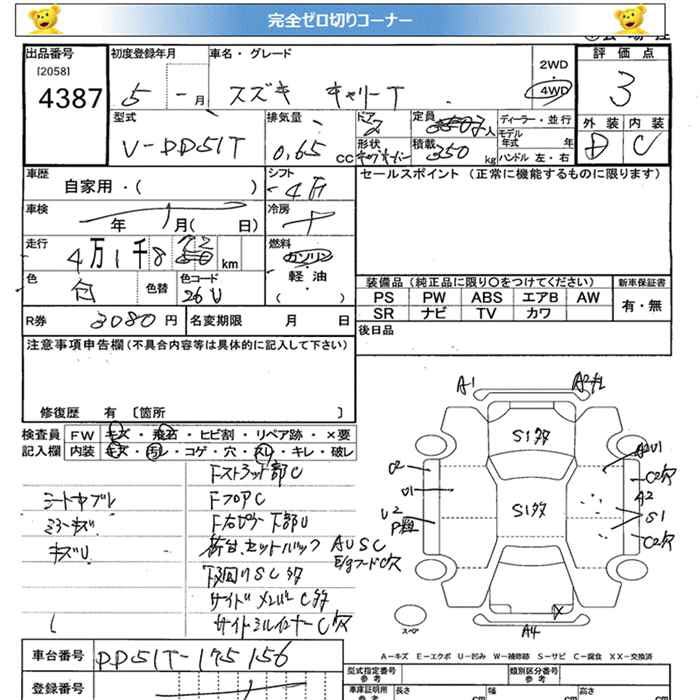 完全ゼロ切りコーナー
出品番号
[2058]
4387
初度登録年月
5 - 月
車名・グレード
スズキ キャリーT
2WD
4WD
評価点
3
外装 内装
D C
型式
V-DD51T
排気量
0.65 CC
ドア
2
形状
定員
人
積載
350 kg
ディーラー・並行
モデル年式 年
ハンドル 左・右
車歴
自家用・( )
シフト
4F
セールスポイント (正常に機能するものに限ります)
車検
年 月( 日)
冷房
走行
4万1千8 km
燃料
ガソリン
軽油
( )
色
白
色替
色コード
26U
装備品(純正品に限り○をつけてください)
新車保証書
PS PW ABS エアB AW
SR ナビ TV カワ
有・無
R券 3080円
名変期限 月 日
後日品
注意事項申告欄(不具合内容等は具体的に記入して下さい)
修復歴 有 〔箇所 〕
検査員記入欄
FW キズ・飛石・ヒビ割・リペア跡・×要
内装 キズ・汚レ・コゲ・穴・スレ・キレ・破レ
シートヤブレ
ミラーキズ
キズU
Fストラット部C
FフロアC
F右ピラー下部U
荷台、セットバック AUSC
E/gフードC穴
下回りSC多
サイドメンバーC多
サイドシルインナーC穴
A-1
A2
S1多
S1多
U2
U1
U2
A2U1
C2穴
A2
S1
C2穴
A4
X
スペア
A-キズ E-エクボ U-凹み W-補修跡 S-サビ C-腐食 XX-交換済
車台番号 DD51T-175156
登録番号
型式指定番号
参考
類別区分番号
参考
車庫証明用
参考
長さ cm
幅 cm
高さ cm